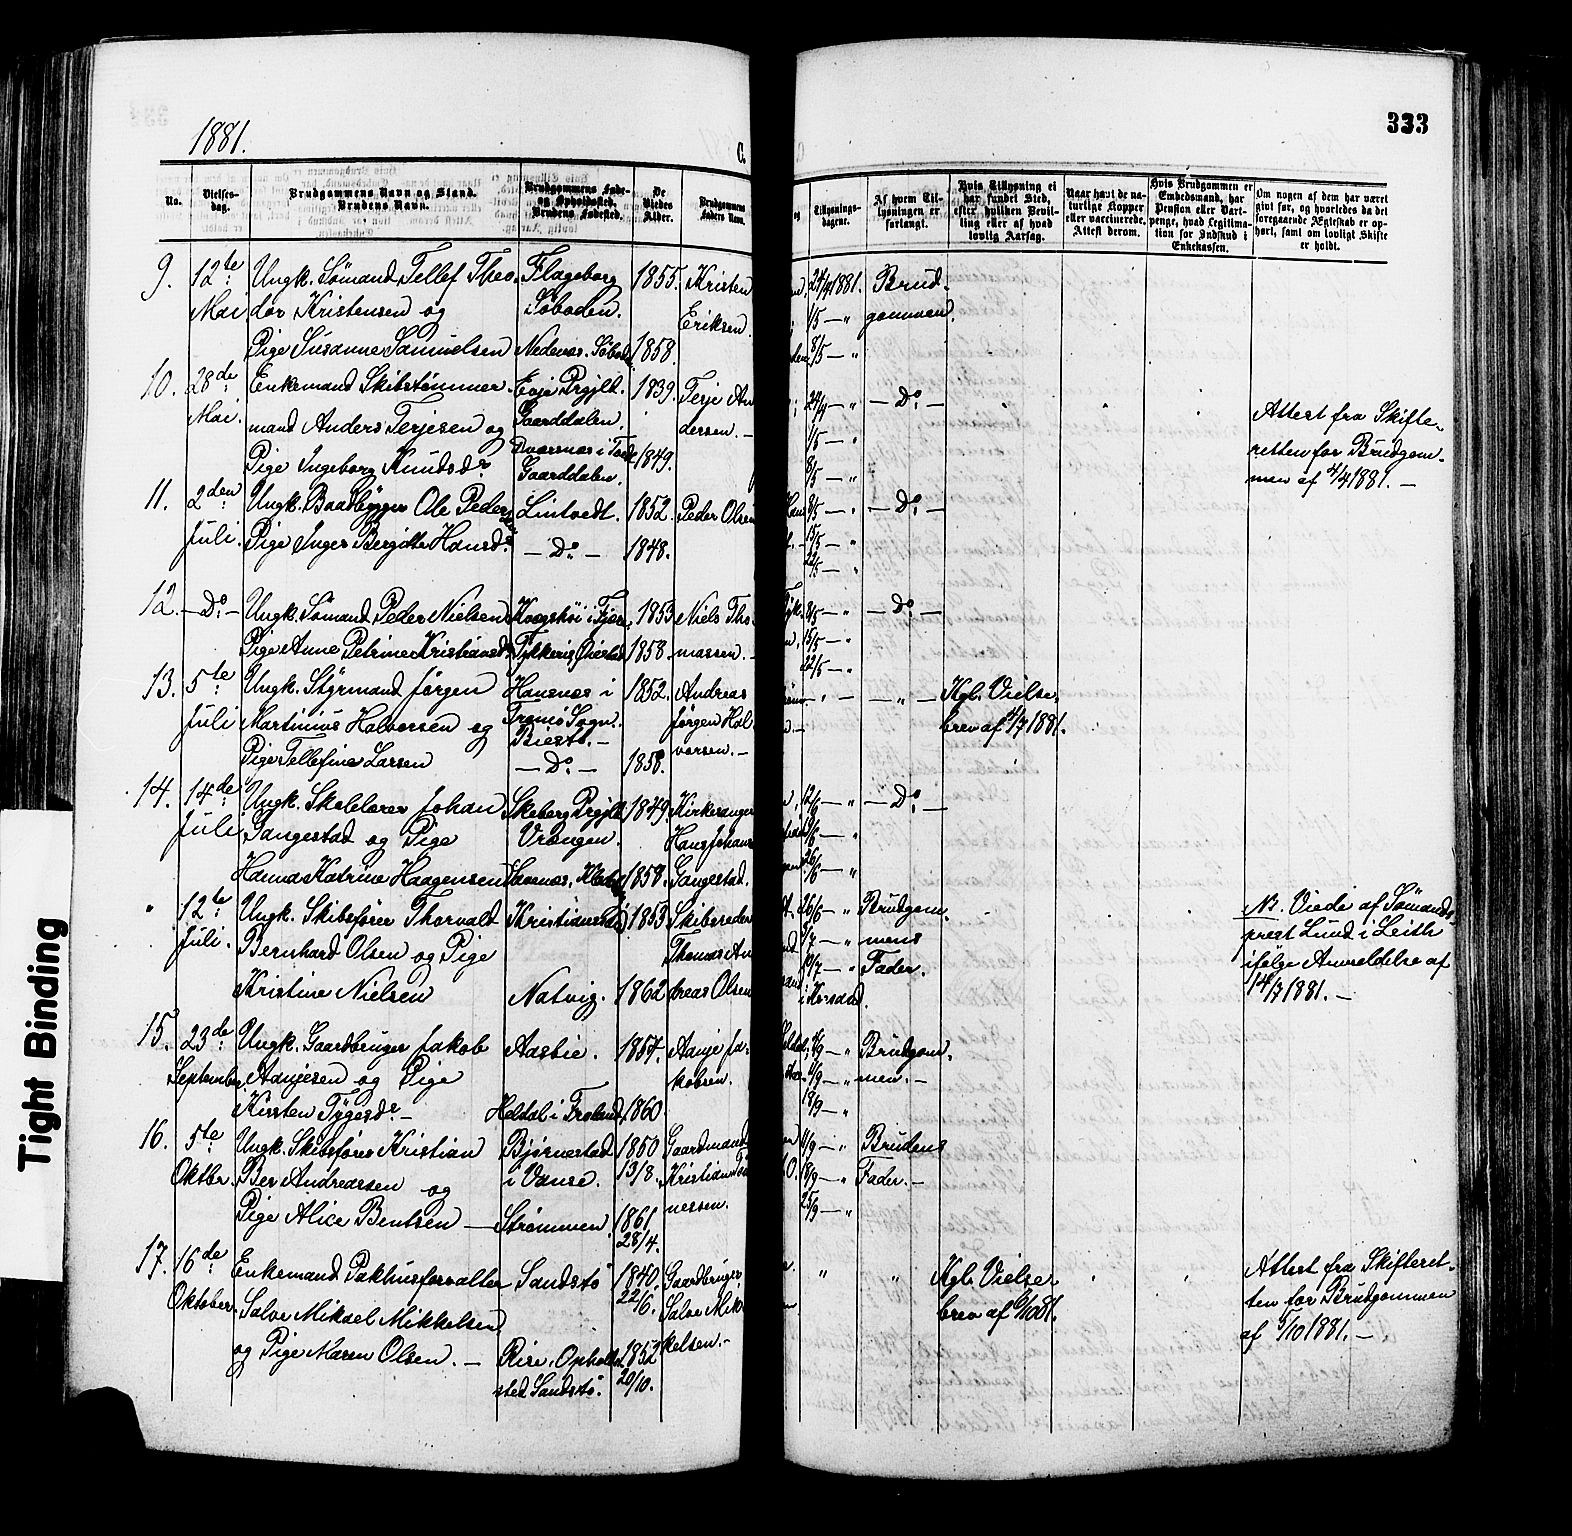 1881.
C.
No.
Vielses-
dag.
Brudgommens Navn og Stand.
Brudens Navn.
Brudgommens Føde-
og Opholdssted.
Brudens Fødested.
De
Viedes
Alder.
Brudgommens
Faders Navn.
9. 12te Ungk. Sømand Tellef Theo- Flageborg 1855. Kristen
Mai dor Kristensen og Søboden. Eriksen
Pige Susanne Samuelsen Nedenes. 1858.
10. 28de Enkemand Skibstømmer- Evje Prgjld. 1839. Terje An
Mai. mand Anders Terjesen og Gaarddalen. dersen. -
Pige Ingeborg Knudsdr. 1849.
Gaarddalen.
11. 2den Ungk. Baadbygger Ole Peder Lintvedt. 1852. Peder Olsen
Juli. Pige Inger Bergitte Hansd. - Do. - 1848.
12. - Do. - Ungk. Sømand Peder Nielsen 1853 Niels Tho-
Pige Anne Petrine Kristiansd. 1858. massen. -
13. 5te Ungk. Styrmand Jørgen Hansnes i 1852. Andreas
Juli Martinius Halvorsen og Tromø Sogn. Jørgen Hal
Biestø. - vorsen. -
Pige Tellefine Larsen - Do. - 1858.
14. 14de Ungk. Skolelærer Johan Skeberg Prgjld. 1849. Kirkesanger
Juli Gangestad og Pige Vrangen. Hans Johans
Hanna Katrine Haagensen 1858. Gangestad.
" 12te Ungk. Skibsfører Thorvald Kristianssand 1853 Skibsreder
Juli. Bernhard Olsen og Pige Thomas An
Kristine Nielsen Natvig. 1862 dreas Olsen
15. 23de Ungk. Gaardbruger Jakob Aasbie. 1857 Aanje Ja-
September Aanjesen og Pige kobsen.
Kirsten Tygesdr. - Heldal i Froland 1860.
16. 5te Ungk. Skibsfører Kristian Bjørnestad 1850 Gaardmand
Oktber. Ber Andreassen og i Vanse. 13/8. Kristian
nessen.
Pige Alice Bentsen - Strømmen 1861
28/4.
17. 16de Enkemand Pakhusforvalter Sandstø 1840. Gaardbruger
Oktober. Salve Mikael Mikkelsen 22/6. Salve Mik
og Pige Maren Olsen. - Rise, Opholds 1852 kelsen. -
sted Sandstø. 20/10.
333
C.
og
Tillysnings-
dagene.
Af hvem Til-
lysningen er
forlangt.
Hvis Tillysning ei
har fundet Sted,
efter hvilken Bevil-
ling eller af hvad
lovlig Aarsag.
Naar havt de na-
turlige Kopper
eller vaccinerede.
Attest derom.
Hvis Brudgommen er
Embedsmand, har
Pension eller Vart-
penge, hvad Legitima-
tion for Indskud i
Enkekassen.
Om nogen af dem har været
givt før, og hvorledes da det
foregaaende Ægteskab er op-
hørt, samt om lovligt Skifte
er holdt.
24/4 1881. Brud-
1/5 - " gommen.
8/5 - "
24/4 - " - Do. -
1/5 - " Attest fra Skifte-
retten for Brudgom-
8/5 - " men af 4/4 1881. -
8/5 - " - Do. -
15/5 - "
22/5 - "
8/5 - " - Do. -
15/5 - "
22/5 - "
" - " - Kgl. Vielses-
brev af 4/7 1881.
12/6 - " - Do. -
19/6 - "
26/6 - "
26/6 - " Brudgom- NB. Viede af Sømands-
3/7 - " mens prest Lund i Leith
10/7 - " Fader. ifølge Anmeldelse af
14/7 1881. -
4/9 - " Brudgom-
11/9 - " men. -
18/9 - "
11/9 - " Brudens
18/9 - " Fader. -
25/9 - "
" " Kgl. Vielses Attest fra Skifteret-
brev af ten for Brudgommen
af 5/10 1881. -
Tight Binding